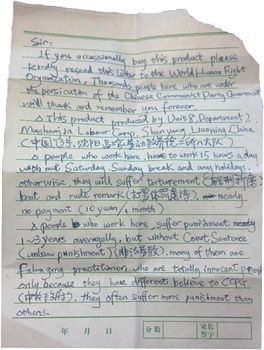 Sir:
If you occassionally buy this product, please
kindly resend this letter to the World Human Right
Organization. Thousands people here who are under
the persicution of the Chinese Communist Party Government
will thank and remember you forever.
This product produced by Unit 8, Department 2,
Masanjia Labour Camp, Shen yang, Liaoning, China
(中国 辽宁, 沈阳 马三家劳动教养院二所八大队)
people who work here, have to work 15 hours a day
with out Saturday, Sunday break and any holidays,
otherwise, they will suffer torturement
beat and rude remark nearly
no payment (10 yuan / 1 month)
people who work here, suffer punishment nearly
1~3 years averagelly, but without Court Sentence
(unlaw punishment) (非法劳教). many of them are
Falungong practitioner, who are totally innocent people
only because they have different believe to CCPG
they often suffer more punishment than
others.
年 月 日
分数
家长
签字